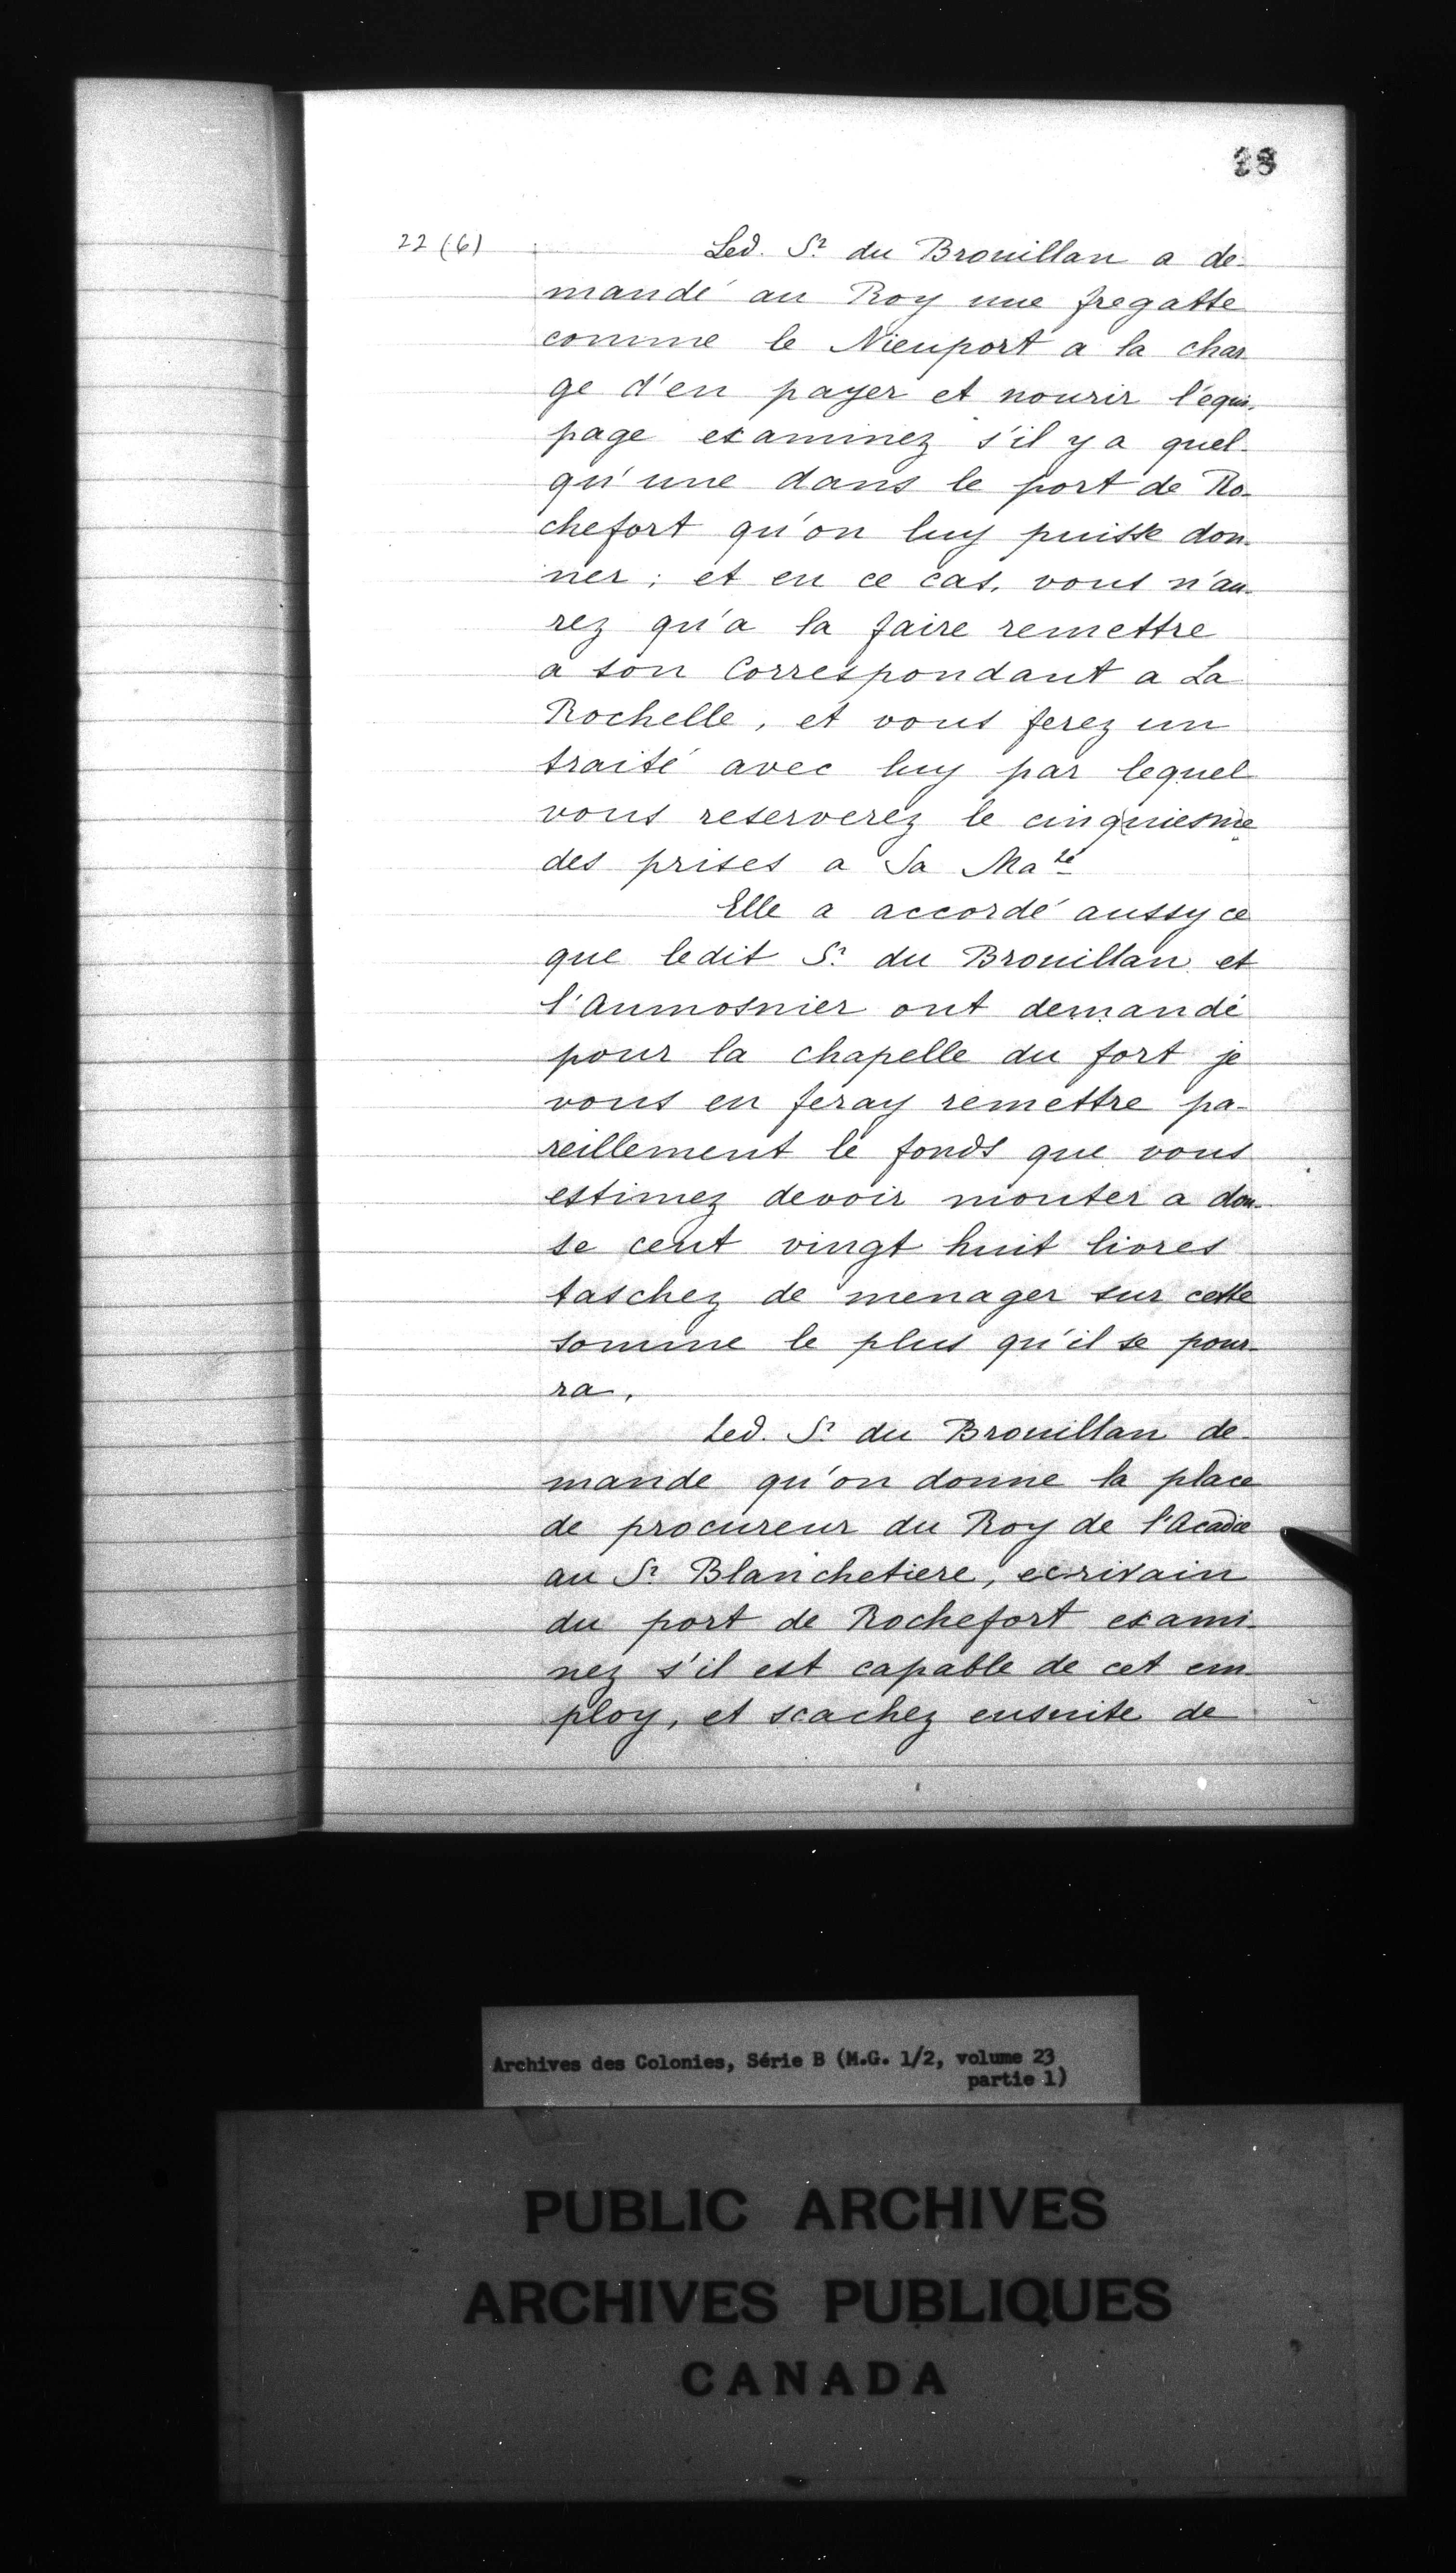 28
22 (6)
Led. Sr. du Brouillan a de-
mandé au Roy une fregatte
comme le Nieuport a la char
ge d'en payer et nourir l'équi-
page examinez s'il y a quel-
qu'une dans le port de Ro-
chefort qu'on luy puisse don-
ner ; et en ce cas, vous n'au-
rez qu'a la faire remettre
a son Correspondant a La
Rochelle, et vous ferez un
traité avec luy par lequel
vous reserverez le cinquiesme
des prises a Sa Maté
Elle a accordé aussy ce
que ledit Sr. du Brouillan et
l'Aumosnier ont demandé
pour la chapelle du fort je
vous en feray remettre pa-
reillement le fonds que vous
estimez devoir monter a dou-
se cent vingt huit livres
taschez de menager sur cette
somme le plus qu'il se pour-
ra.
Led. Sr. du Brouillan de-
mande qu'on donne la place
de procureur du Roy de l'Acadie
au Sr. Blanchetiere, ecrivain
du port de Rochefort exami-
nez s'il est capable de cet em-
ploy, et scachez ensuite de
Archives des Colonies, Série B (M.G. 1/2, volume 23
partie 1)
PUBLIC ARCHIVES
ARCHIVES PUBLIQUES
CANADA